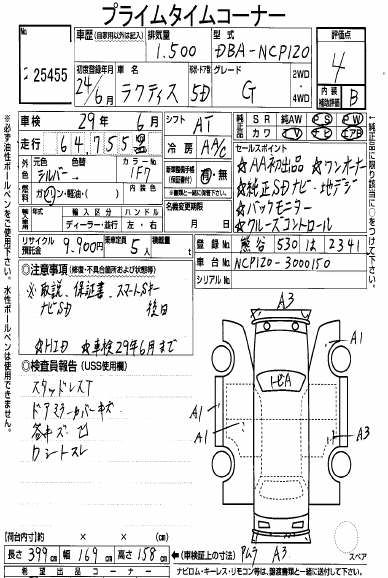 プライムタイムコーナー
25455
車歴 (自家用以外は記入) 排気量 1.500 型式 DBA-NCP120 評価点 4
初度登録年月 24年6月 車名 ラクティス 形状・ドア数 5D グレード G 2WD 4WD
内装 補助評価 B
車検 29年 6月 シフト AT
純正品 SR 純AW PS PW
カワ TV エアB
走行 64755
冷房 AAC
セールスポイント
元色 シルバー 色替 カラーNo. 1F7
☆AA初出品 ☆ワンオーナー
燃料 ガソリン・軽油・( ) 内装色
新車整備手帳(保証書) 有・無
(書類と一緒に提出)
☆純正SDナビ・地デジ
輸入区分 ディーラー・並行 ハンドル 左・右
名義変更期限 月 日
☆バックモニター
☆クルーズコントロール
リサイクル預託金 9,900円 乗車定員 5人 積載量
登録No. 熊谷 530 は 2341
車台No. NCP120-3000150
シリアルNo.
◎注意事項 (修復・不具合箇所および状態等)
※取説、保証書、スマートキー
ナビSD 後日
☆HID ☆車検29年6月まで
◎検査員報告 (USS使用欄)
スタッドレスT
ドアミラーカバーキズ
A3
A1
A1
A1
A1
A3
スペア
【荷台内寸】 × × (cm)
長さ 399cm 幅 169cm 高さ 158cm
←(車検証上の寸法)
A3
希望出品コーナー
ナビロム・キーレス・リモコン等は、譲渡書類と一緒に送付して下さい。
※必ず油性ボールペンをご使用下さい。水性ボールペンは使用できません。